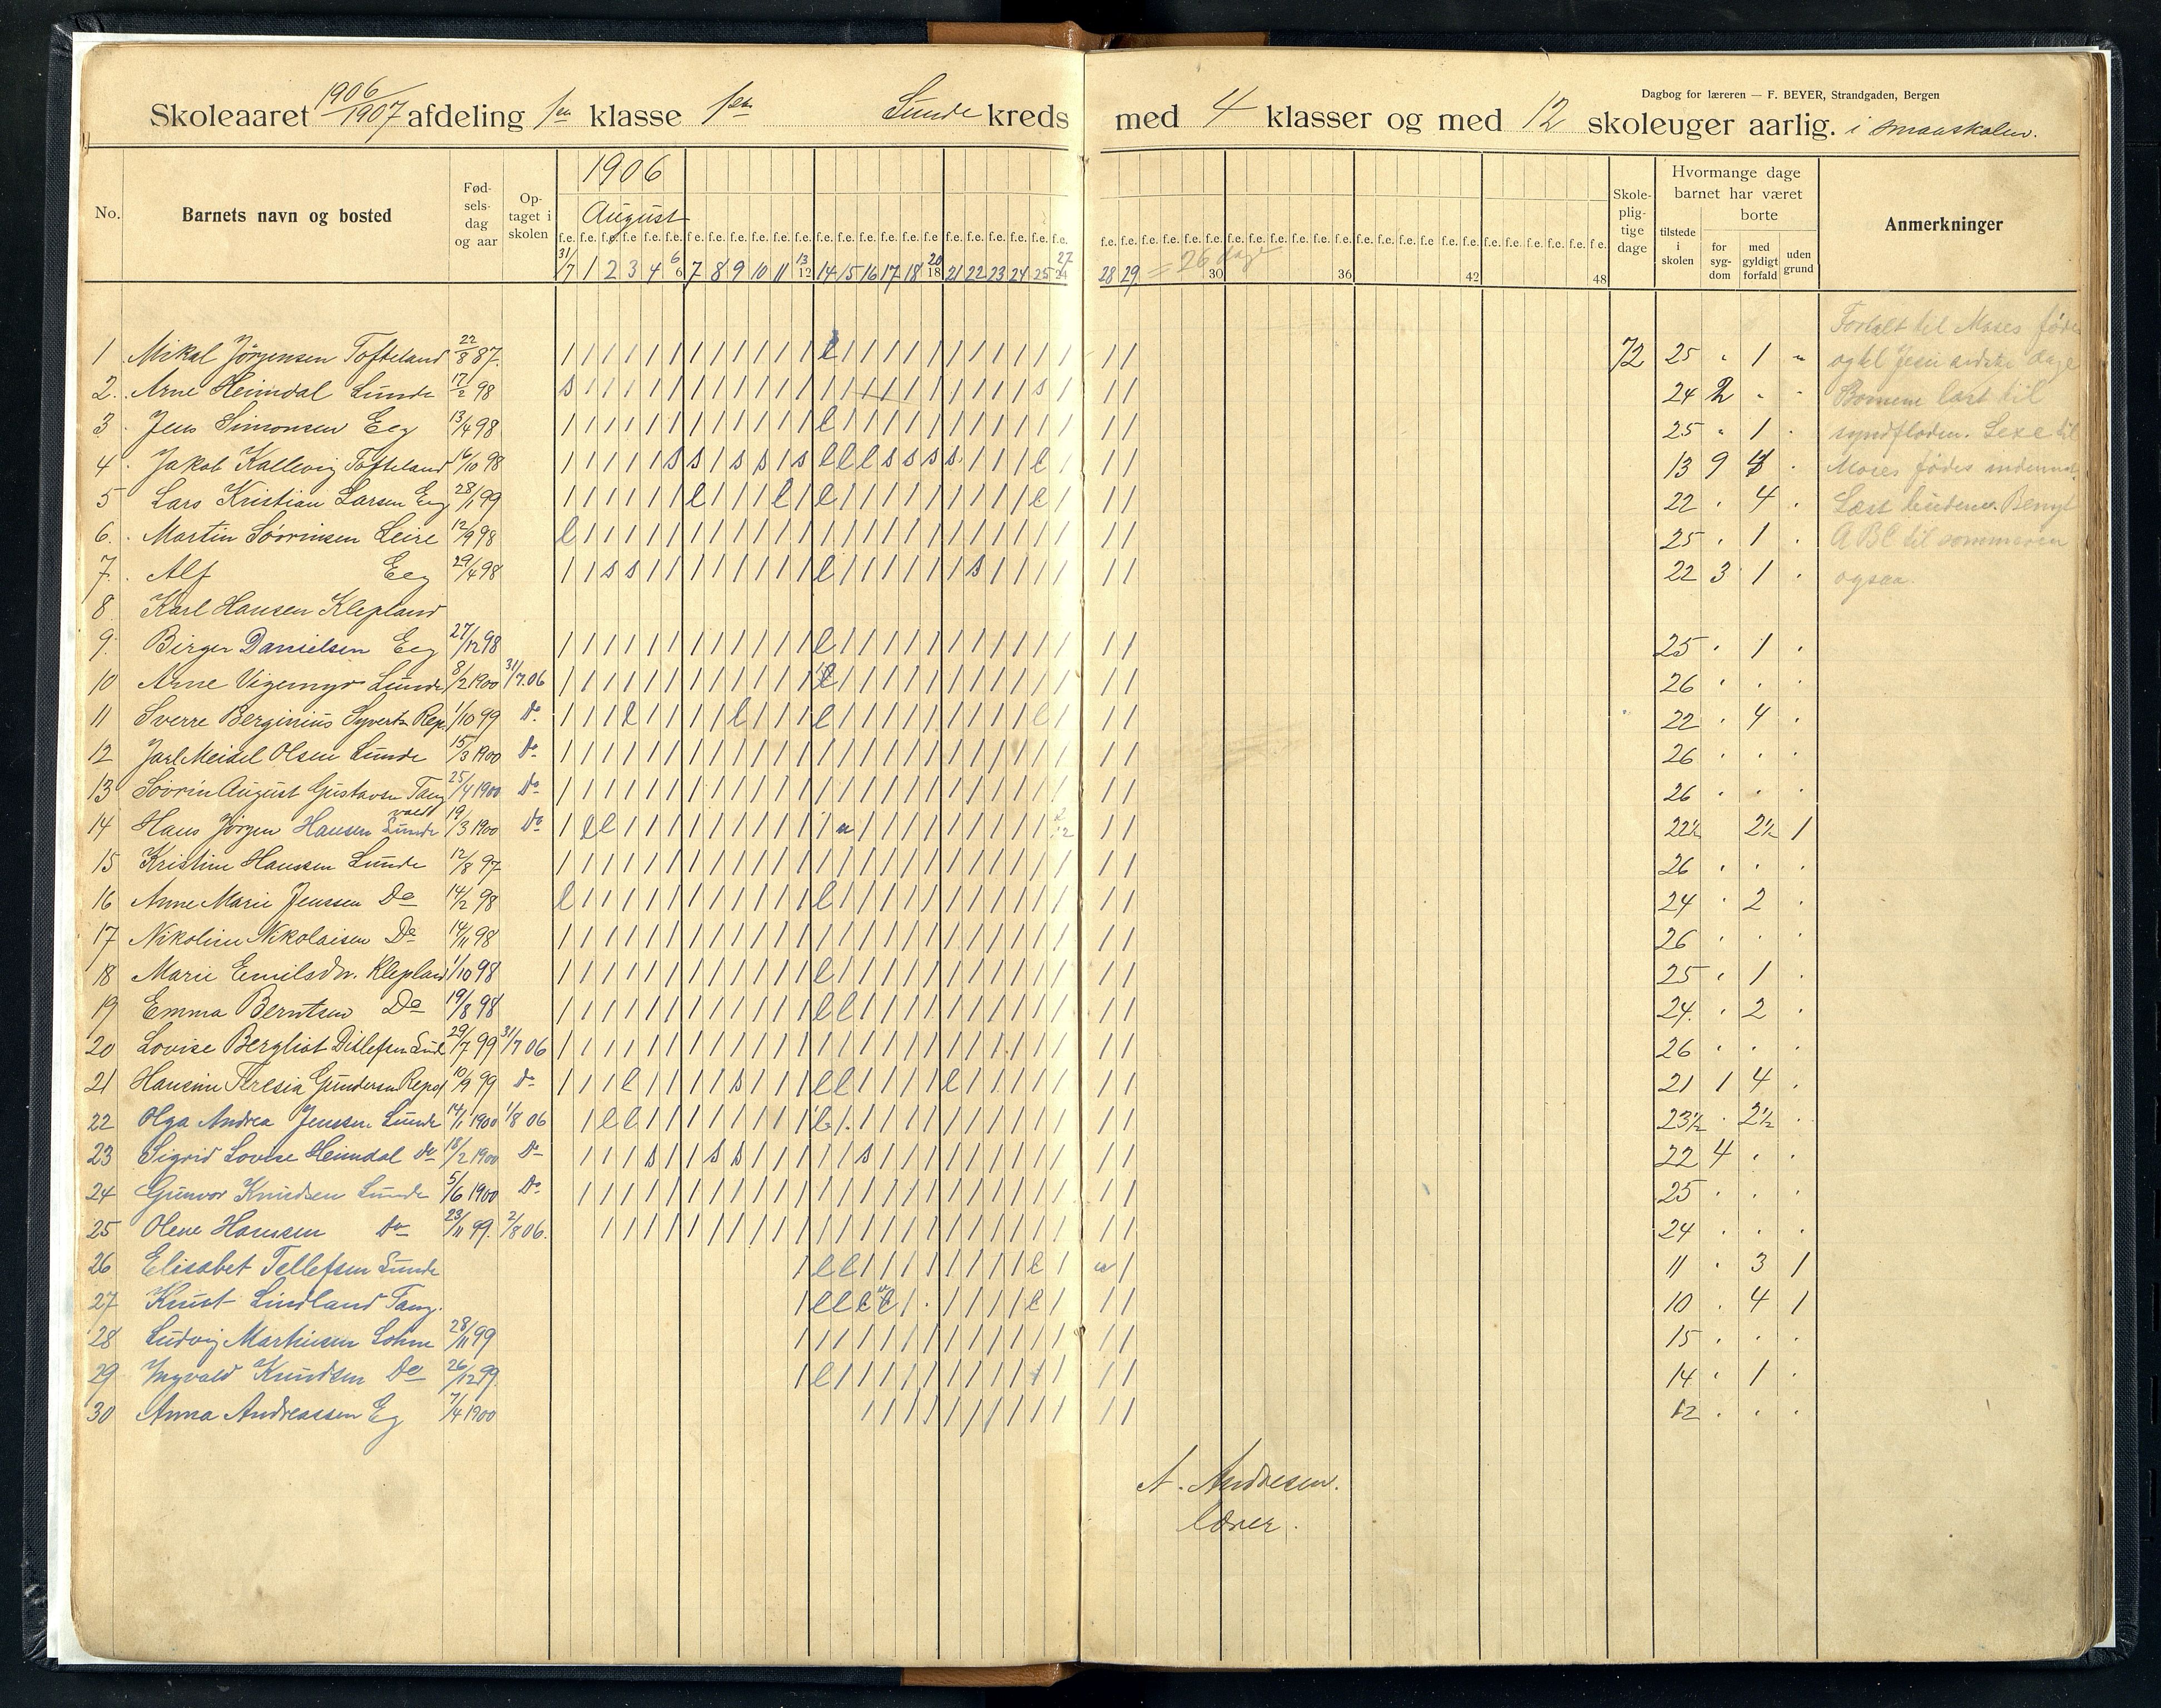 Dagbog for læreren — F. BEYER, Strandgaden, Bergen
Skoleaaret 1906/1907 afdeling 1en klasse 1en Lunde kreds med 4 klasser og med 12 skoleuger aarlig. i smaaskolen.
1906
August
No. Barnets navn og bosted Fødselsdag og aar Optaget i skolen
31/7 1 2 3 4 6/6 7 8 9 10 11 13/12 14 15 16 17 18 20/18 21 22 23 24 25 27/24 28 29 = 26 dage 30 36 42 48
Skolepligtige dage
Hvormange dage barnet har været
tilstede i skolen
borte
for sygdom med gyldigt forfald uden grund
Anmerkninger
1 Mikal Jörgensen Tofteland 22/8 87. 72 25 " 1 "
2. Arne Heimdal Lunde 17/2 98 24 2 . .
3 Jens Simonsen Eeg 13/4 98 25 " 1 .
4 Jakob Kallevig Tofteland 16/10 98 13 9 4 .
5 Lars Kristian Larsen Eeg 28/1 99 22 . 4 .
6. Martin Sörrinsen Leire 12/9 98 25 . 1 .
7. Alf Eeg 29/4 98 22 3 1 .
8 Karl Hansen Klepland
9. Birger Danielsen Eeg 27/12 98 25 . 1 .
10 Arne Vigemyr Lunde 8/2 1900 31/7.06 26 . . .
11 Sverre Berginius Syverts Rep. 1/10 99 Do 22 . 4 .
12 Jarl Meidel Olsen Lunde 15/3 1900 Do 26 . . .
13 Sövrin August Gustavsen Tang 25/4 1900 Do 26 . . .
vald
14 Hans Jörgen Hansen Lunde 19/3 1900 Do 22½ 2½ 1
15 Kristine Hanssen Lunde 12/8 97 26 . . .
16 Anne Marie Jenssen Do 14/2 98 24 . 2 .
17 Nikoline Nikolaisen Do 14/11 98 26 . . .
18 Marie Emilsdtr. Klepland 1/10 98 25 . 1 .
19 Emma Berntsen Do 19/8 98 24. . 2 .
20 Lovise Bergliot Ditlefsen Lund 29/7 99 31/7 06 26 . . .
21 Hansine Teresia Gundersen Repst 10/9 99 Do 21 1 4 .
22 Olga Andrea Jenssen Lunde 14/1 1900 1/8 06 23½ . 2½ .
23 Sigrid Lovise Heimdal Do 18/2 1900 Do 22 4 . .
24 Gunvor Knudsen Lunde 5/6 1900 Do 25 . . .
25 Olene Hanssen Do 23/11 99. 2/8 06. 24 . . .
26 Elisabet Tellefsen Lunde 11 . 3 1
27 Knut Lindland Tang. 10 . 4 1
28 Ludvig Martinsen Lohne 28/11 99 15 . . .
29 Ingvald Knudsen Do 26/12 99. 14 . 1 .
30 Anna Andreassen Eg 7/4 1900 12 . . .
Fortalt til Moses føde
og til Jesu sidste dage
læst til
syndfloden. Lexe til
Moses fødes
Læst budene. Benyt
ABC til sommeren
ogsaa.
A. Andresen.
lærer.